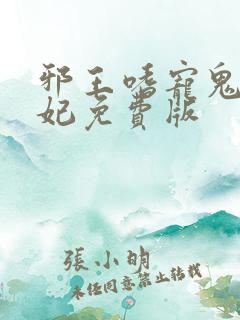 邪王嗜寵鬼
妃免費版
張小明
未任同意禁止转载